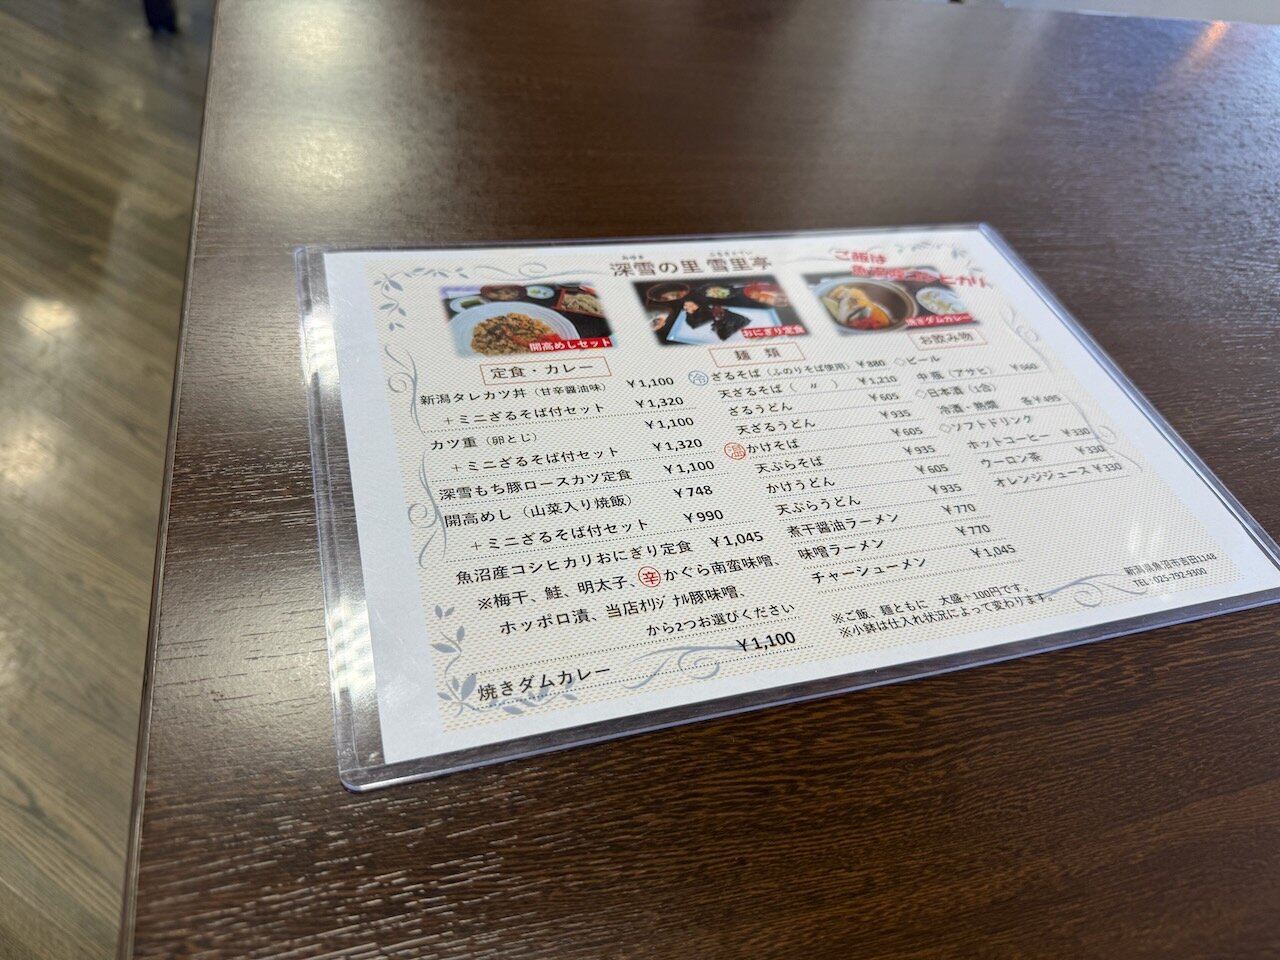 深雪の里 雪里亭
ご飯は
魚沼産コシヒカリ
開高めしセット
おにぎり定食
焼きダムカレー
定食・カレー
新潟タレカツ丼（甘辛醤油味） ￥1,100
＋ミニざるそば付セット ￥1,320
カツ重（卵とじ） ￥1,100
＋ミニざるそば付セット ￥1,320
深雪もち豚ロースカツ定食 ￥1,100
開高めし（山菜入り焼飯） ￥748
＋ミニざるそば付セット ￥990
魚沼産コシヒカリおにぎり定食 ￥1,045
※梅干、鮭、明太子、辛かぐら南蛮味噌、
ホッポロ漬、当店ｵﾘｼﾞﾅﾙ豚味噌、
から2つお選びください
焼きダムカレー ￥1,100
麺 類
冷 ざるそば（ふのりそば使用） ￥880
天ざるそば（ 〃 ） ￥1,210
ざるうどん ￥605
天ざるうどん ￥935
温 かけそば ￥605
天ぷらそば ￥935
かけうどん ￥605
天ぷらうどん ￥935
煮干醤油ラーメン ￥770
味噌ラーメン ￥770
チャーシューメン ￥1,045
お飲み物
◇ビール
中瓶（アサヒ） ￥660
◇日本酒（1合）
冷酒・熱燗 各￥495
◇ソフトドリンク
ホットコーヒー ￥330
ウーロン茶 ￥330
オレンジジュース ￥330
※ご飯、麺ともに 大盛＋100円です。
※小鉢は仕入れ状況によって変わります。
新潟県魚沼市吉田1148
TEL：025-792-9300